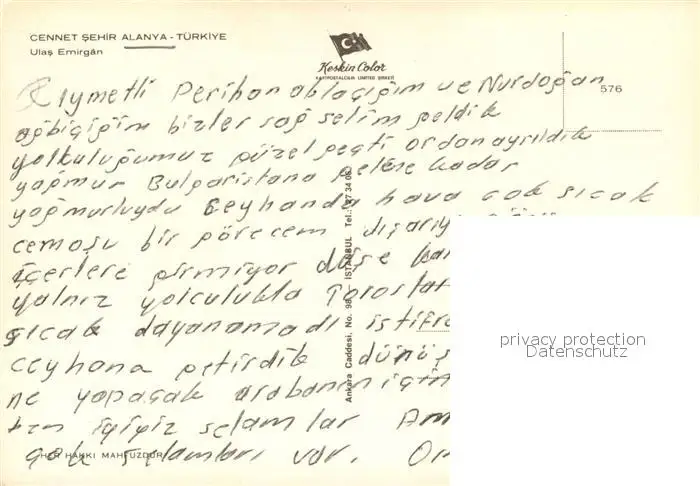 CENNET ŞEHİR ALANYA - TÜRKİYE
Ulaş Emirgân
Keskin Color
KARTPOSTALCILIK LIMITED ŞİRKETİ
576
Kıymetli Perihan ablacığım ve Nurdoğan
ağbiciğim bizler sağ selim geldik
yolculuğumuz güzel geçti ordan ayrıldık
yağmur Bulgaristana gelene kadar
yağmurluydu Ceyhanda hava çok sıcak
cemoşu bir görecem dışarıya
içerlere girmiyor düşe
yalnız yolculukta Toroslar
sıcak dayanamadı istifra
ceyhana getirdik dönüş
ne yapacak arabanın için
iyiyiz selamlar
çok selamları var.
HER HAKKI MAHFUZDUR
Ankara Caddesi. No. 98 İSTANBUL Tel.: 27 34 08
privacy protection
Datenschutz